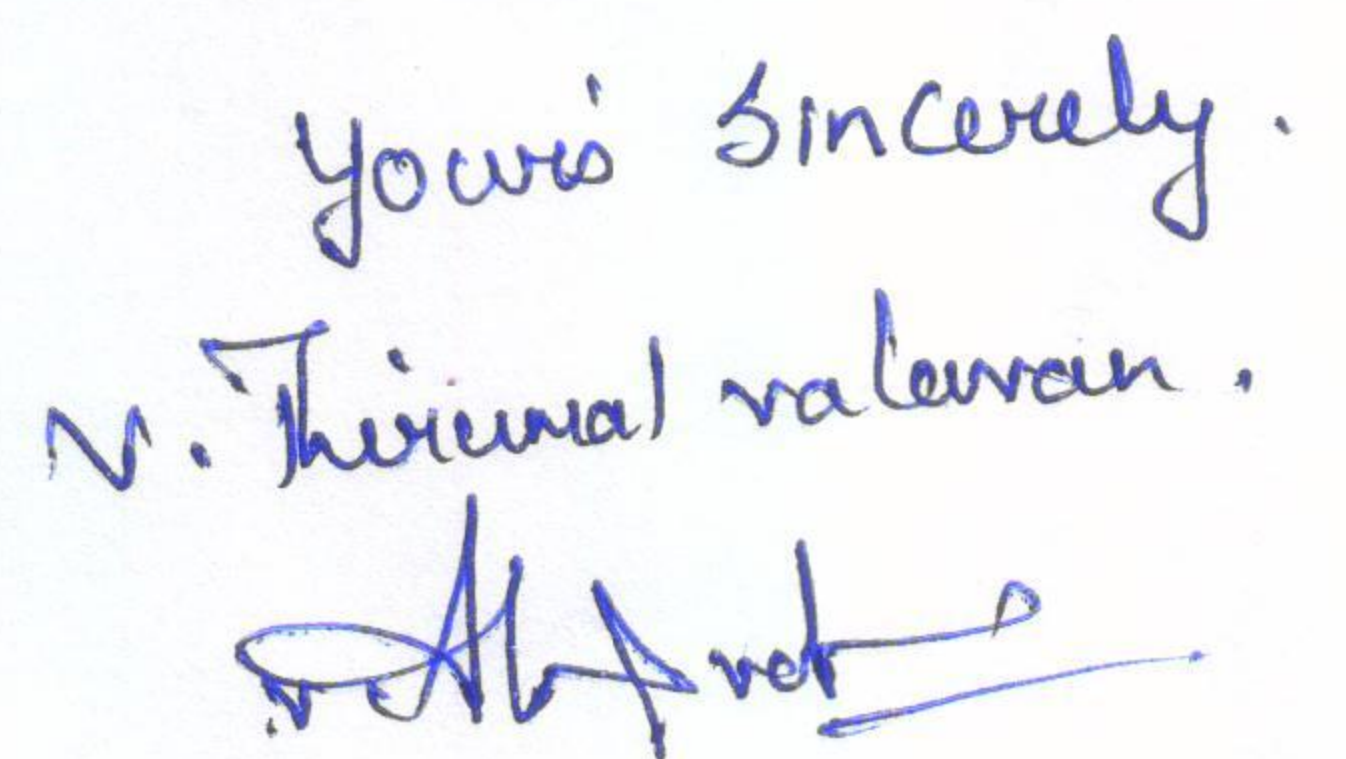 Yours Sincerely.
N. Thirumal valavan.